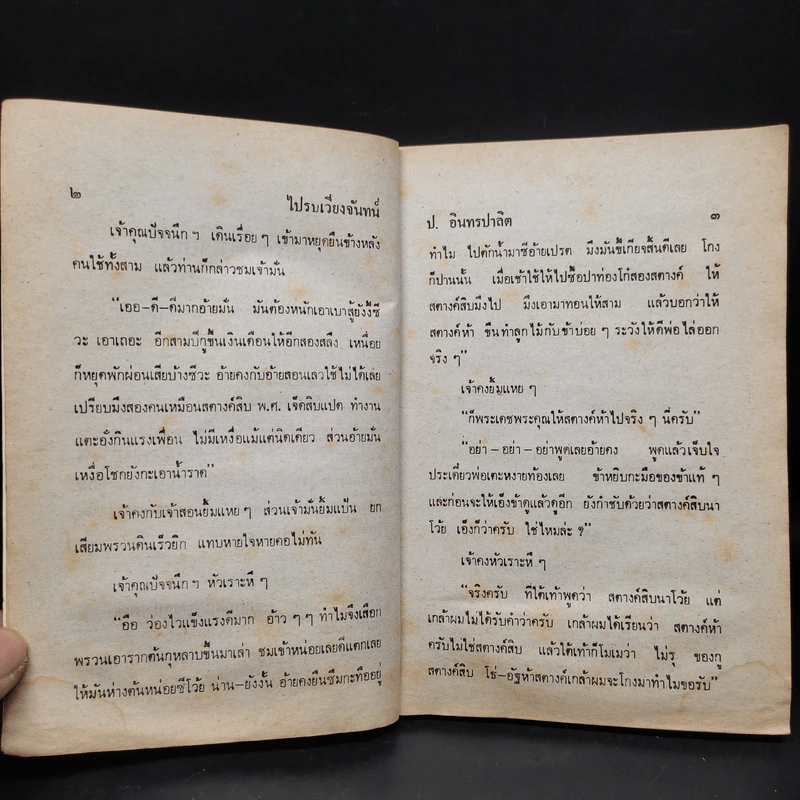 ๒
ไปรบเวียงจันทน์
เจ้าคุณปัจจนึก ฯ เดินเรื่อย ๆ เข้ามาหยุดยืนข้างหลัง
คนใช้ทั้งสาม แล้วท่านก็กล่าวชมเจ้ามั่น
“เออ-ดี-ดีมากอ้ายมั่น มันต้องหนักเอาเบาสู้ยังงี้ซี
วะ เอาเถอะ อีกสามปีกูขึ้นเงินเดือนให้อีกสองสลึง เหนื่อย
ก็หยุดพักผ่อนเสียบ้างซีวะ อ้ายคงกับอ้ายสอนเลวใช้ไม่ได้เลย
เปรียบมึงสองคนเหมือนสตางค์สิบ พ.ศ. เจ็ดสิบแปด ทำงาน
แตะอั๋งกินแรงเพื่อน ไม่มีเหงื่อแม้แต่นิดเดียว ส่วนอ้ายมั่น
เหงื่อโชกยังกะเอาน้ำราด”
เจ้าคงกับเจ้าสอนยิ้มแหย ๆ ส่วนเจ้ามั่นยิ้มแป้น ยก
เสียมพรวนดินเร็วยิก แทบหายใจหายคอไม่ทัน
เจ้าคุณปัจจนึก ฯ หัวเราะหึ ๆ
“อือ ว่องไวแข็งแรงดีมาก อ้าว ๆ ๆ ทำไมจึงเสือก
พรวนเอารากต้นกุหลาบขึ้นมาเล่า ชมเข้าหน่อยเลยดีแตกเลย
ให้มันห่างต้นหน่อยซีโว้ย น่าน-ยังงั้น อ้ายคงยืนซึมกะทืออยู่
ป. อินทรปาลิต
๓
ทำไม ไปตักน้ำมาซีอ้ายเปรต มึงมันขี้เกียจสิ้นดีเลย โกง
ก็ปานนั้น เมื่อเช้าใช้ให้ไปซื้อปาท่องโก๋สองสตางค์ ให้
สตางค์สิบมึงไป มึงเอามาทอนให้สาม แล้วบอกว่าให้
สตางค์ห้า ขืนทำลูกไม้กับข้าบ่อย ๆ ระวังให้ดีพ่อไล่ออก
จริง ๆ”
เจ้าคงยิ้มแหย ๆ
“ก็พระเดชพระคุณให้สตางค์ห้าไปจริง ๆ นี่ครับ”
“อย่า - อย่า - อย่าพูดเลยอ้ายคง พูดแล้วเจ็บใจ
ประเดี๋ยวพ่อเตะหงายท้องเลย ข้าหยิบกะมือของข้าแท้ ๆ
และก่อนจะให้เอ็งข้าดูแล้วดูอีก ยังกำชับด้วยว่าสตางค์สิบนา
โว้ย เอ็งก็ว่าครับ ใช่ไหมล่ะ ?”
เจ้าคงหัวเราะหึ ๆ
“จริงครับ ที่ใต้เท้าพูดว่า สตางค์สิบนาโว้ย แต่
เกล้าผมไม่ได้รับคำว่าครับ เกล้าผมได้เรียนว่า สตางค์ห้า
ครับไม่ใช่สตางค์สิบ แล้วใต้เท้าก็โมเมว่า ไม่รุ ของกู
สตางค์สิบ โธ่-อัฐห้าสตางค์เกล้าผมจะโกงมาทำไมขอรับ”